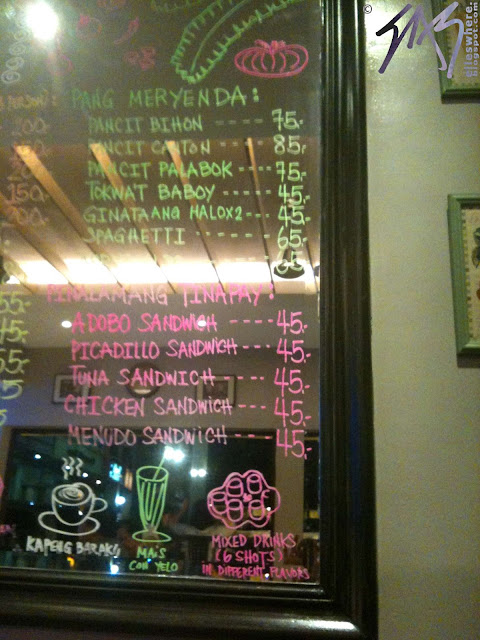 PERSON):
PANG MERYENDA:
200-
PANCIT BIHON ---- 75.-
PANCIT CANTON ---- 85.-
PANCIT PALABOK ---- 75.-
150-
TOKWA'T BABOY ----- 45.-
200-
GINATAANG HALOX2--- 45.-
SPAGHETTI ----- 65.-
65.-
55-
PINALAMANG TINAPAY:
45-
ADOBO SANDWICH ---- 45.-
55-
PICADILLO SANDWICH--- 45.-
TUNA SANDWICH ---- 45.-
CHICKEN SANDWICH --- 45.-
MENUDO SANDWICH --- 45.-
KAPENG BARAKO
MAIS
CON YELO
MIXED DRINKS
(6 SHOTS)
IN DIFFERENT FLAVORS
©
ellieswhere.
blogspot.com